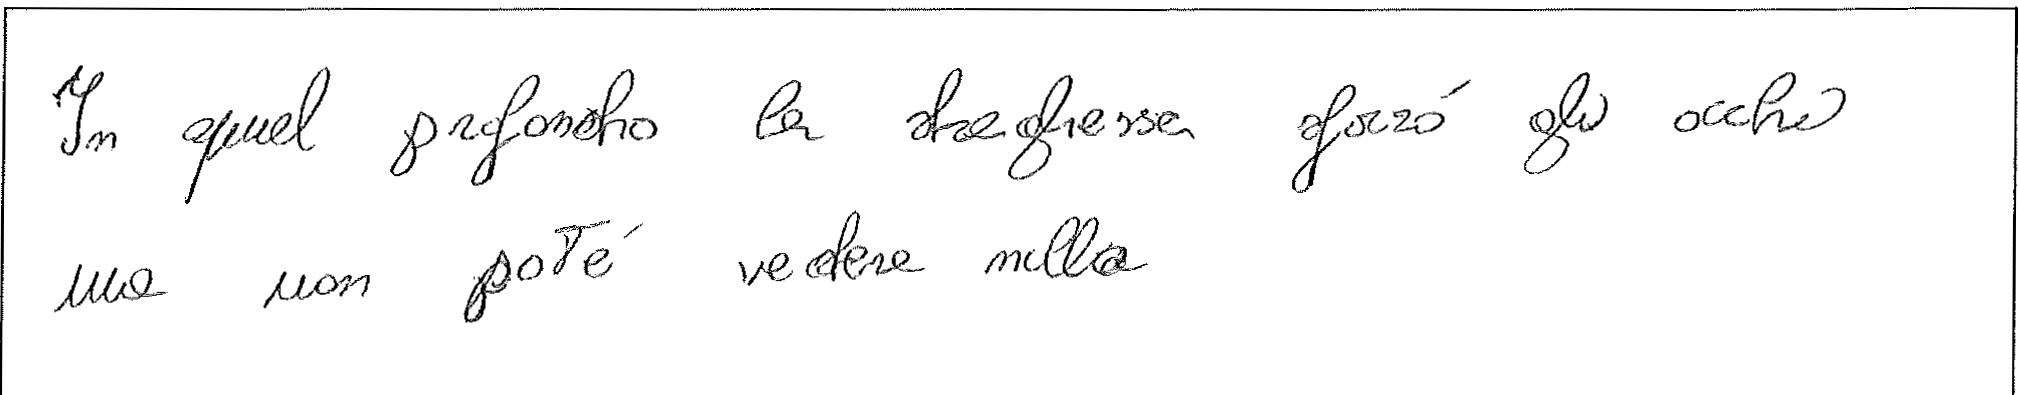 In quel profondo la draghessa sforzó gli occhi
ma non poté vedere nulla